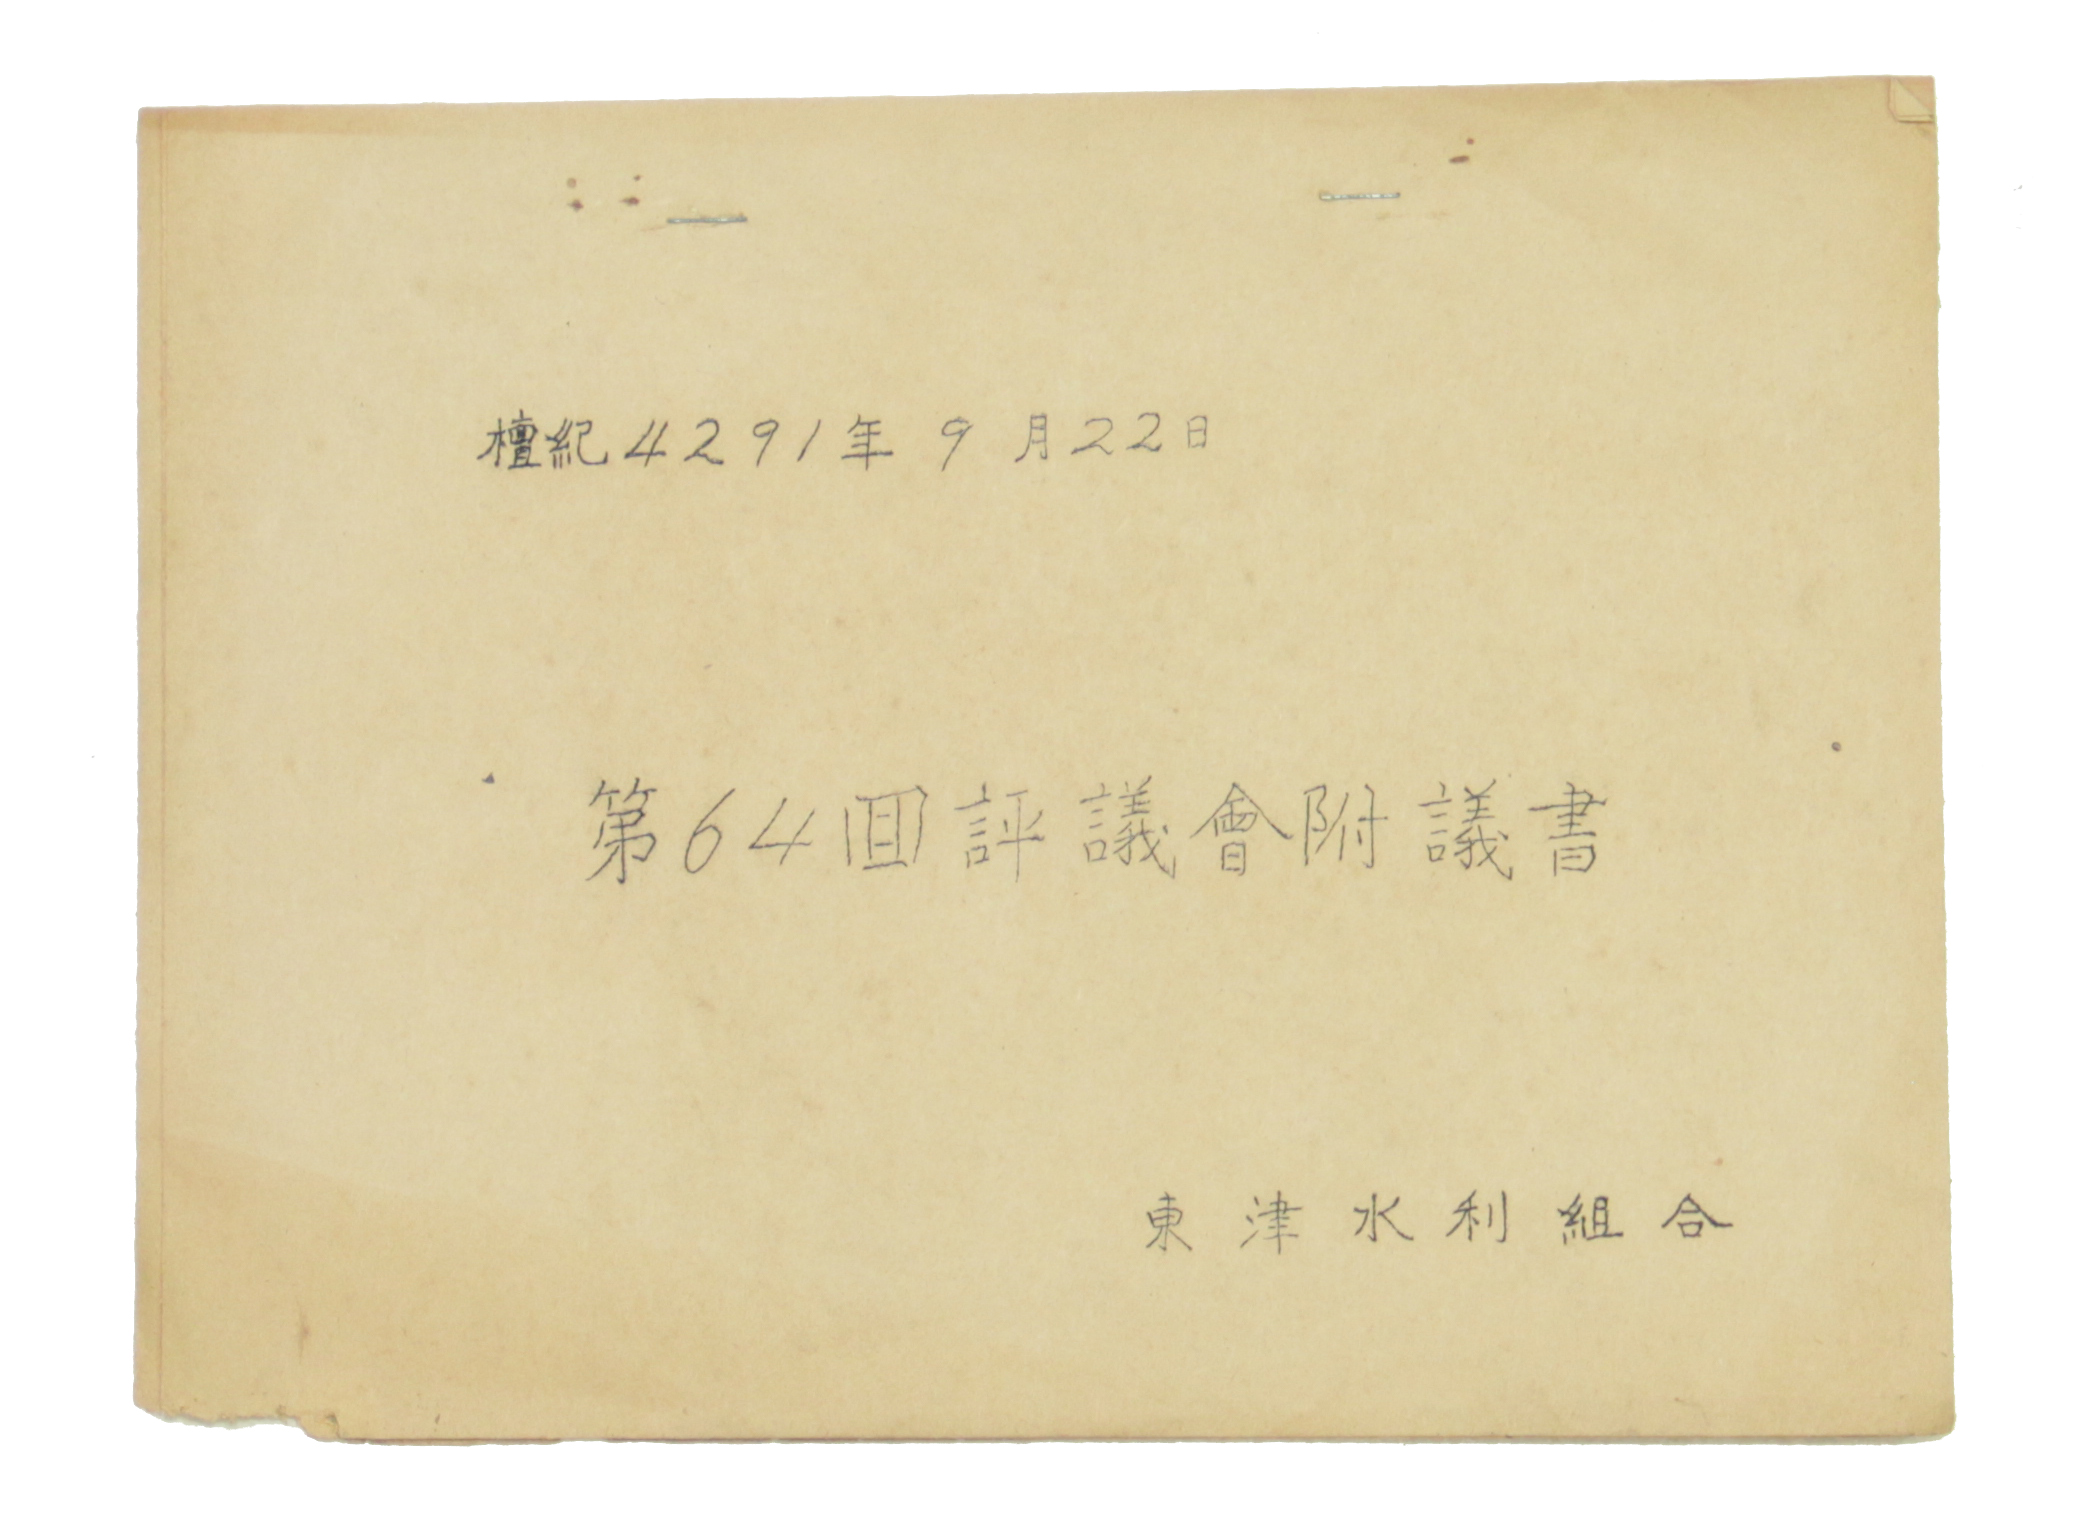 檀紀4291年9月22日
第64回評議會附議書
東津水利組合